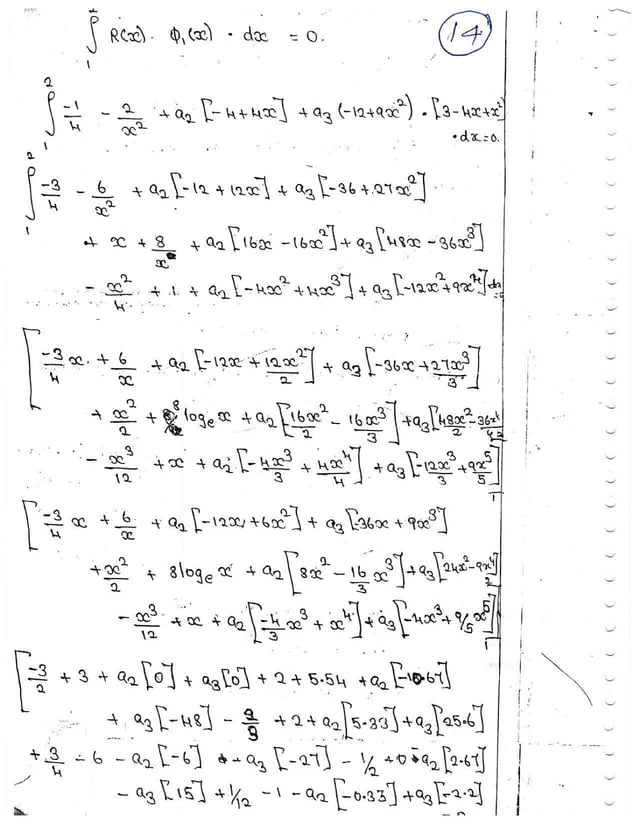 ∫₁² R(x). Φ₁(x) . dx = 0. 14
∫₁² -1/4 - 2/x² + a₂ [-4+4x] + a₃ (-12+9x²) . [3-4x+x²]
. dx=0.
∫₁² -3/4 - 6/x² + a₂ [-12+12x] + a₃ [-36+27x²]
+ x + 8/x + a₂ [16x - 16x²] + a₃ [48x - 36x³]
- x²/4 + 1 + a₂ [-4x² + 4x³] + a₃ [-12x² + 9x⁴] dx
[-3/4 x + 6/x + a₂ [-12x + 12x²/2] + a₃ [-36x + 27x³/3]
+ x²/2 + 8 logₑ x + a₂ [16x²/2 - 16x³/3] + a₃ [48x²/2 - 36x⁴/4]
- x³/12 + x + a₂ [-4x³/3 + 4x⁴/4] + a₃ [-12x³/3 + 9x⁵/5]]₁
[-3/4 x + 6/x + a₂ [-12x + 6x²] + a₃ [-36x + 9x³]
+ x²/2 + 8 logₑ x + a₂ [8x² - 16/3 x³] + a₃ [24x² - 9x⁴]
- x³/12 + x + a₂ [-4/3 x³ + x⁴] + a₃ [-4x³ + 9/5 x⁵]]₁²
[-3/2 + 3 + a₂ [0] + a₃ [0] + 2 + 5.54 + a₂ [-10.67]
+ a₃ [-48] - + 2 + a₂ [5.33] + a₃ [25.6]
+ 3/4 - 6 - a₂ [-6] - a₃ [-27] - 1/2 + 0 - a₂ [2.67]
- a₃ [15] + 1/12 - 1 - a₂ [-0.33] + a₃ [-2.2]